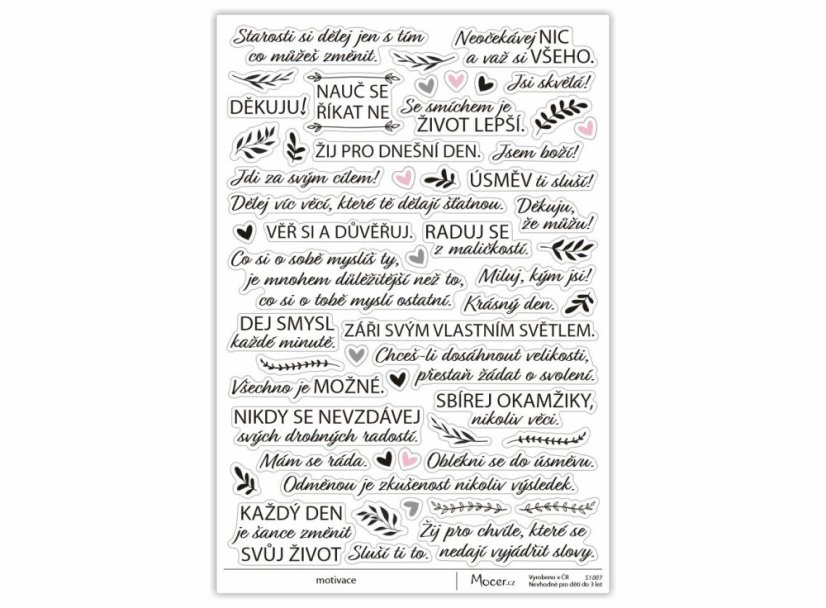 Starosti si dělej jen s tím
co můžeš změnit.
Neočekávej NIC
a važ si VŠEHO.
NAUČ SE
ŘÍKAT NE
Jsi skvělá!
DĚKUJU!
Se smíchem je
ŽIVOT LEPŠÍ.
ŽIJ PRO DNEŠNÍ DEN.
Jsem boží!
Jdi za svým cílem!
ÚSMĚV ti sluší!
Dělej víc věcí, které tě dělají šťatnou.
Děkuju,
že můžu!
VĚŘ SI A DŮVĚŘUJ.
RADUJ SE
z maličkostí.
Co si o sobě myslíš ty,
je mnohem důležitější než to,
co si o tobě myslí ostatní.
Miluj, kým jsi!
Krásný den.
DEJ SMYSL
každé minutě.
ZÁŘI SVÝM VLASTNÍM SVĚTLEM.
Chceš-li dosáhnout velikosti,
přestaň žádat o svolení.
Všechno je MOŽNÉ.
SBÍREJ OKAMŽIKY,
nikoliv věci.
NIKDY SE NEVZDÁVEJ
svých drobných radostí.
Mám se ráda.
Oblékni se do úsměvu.
Odměnou je zkušenost nikoliv výsledek.
KAŽDÝ DEN
je šance změnit
SVŮJ ŽIVOT
Sluší ti to.
Žij pro chvíle, které se
nedají vyjádřit slovy.
motivace
Mocer.cz
Vyrobeno v ČR 51007
Nevhodné pro děti do 3 let